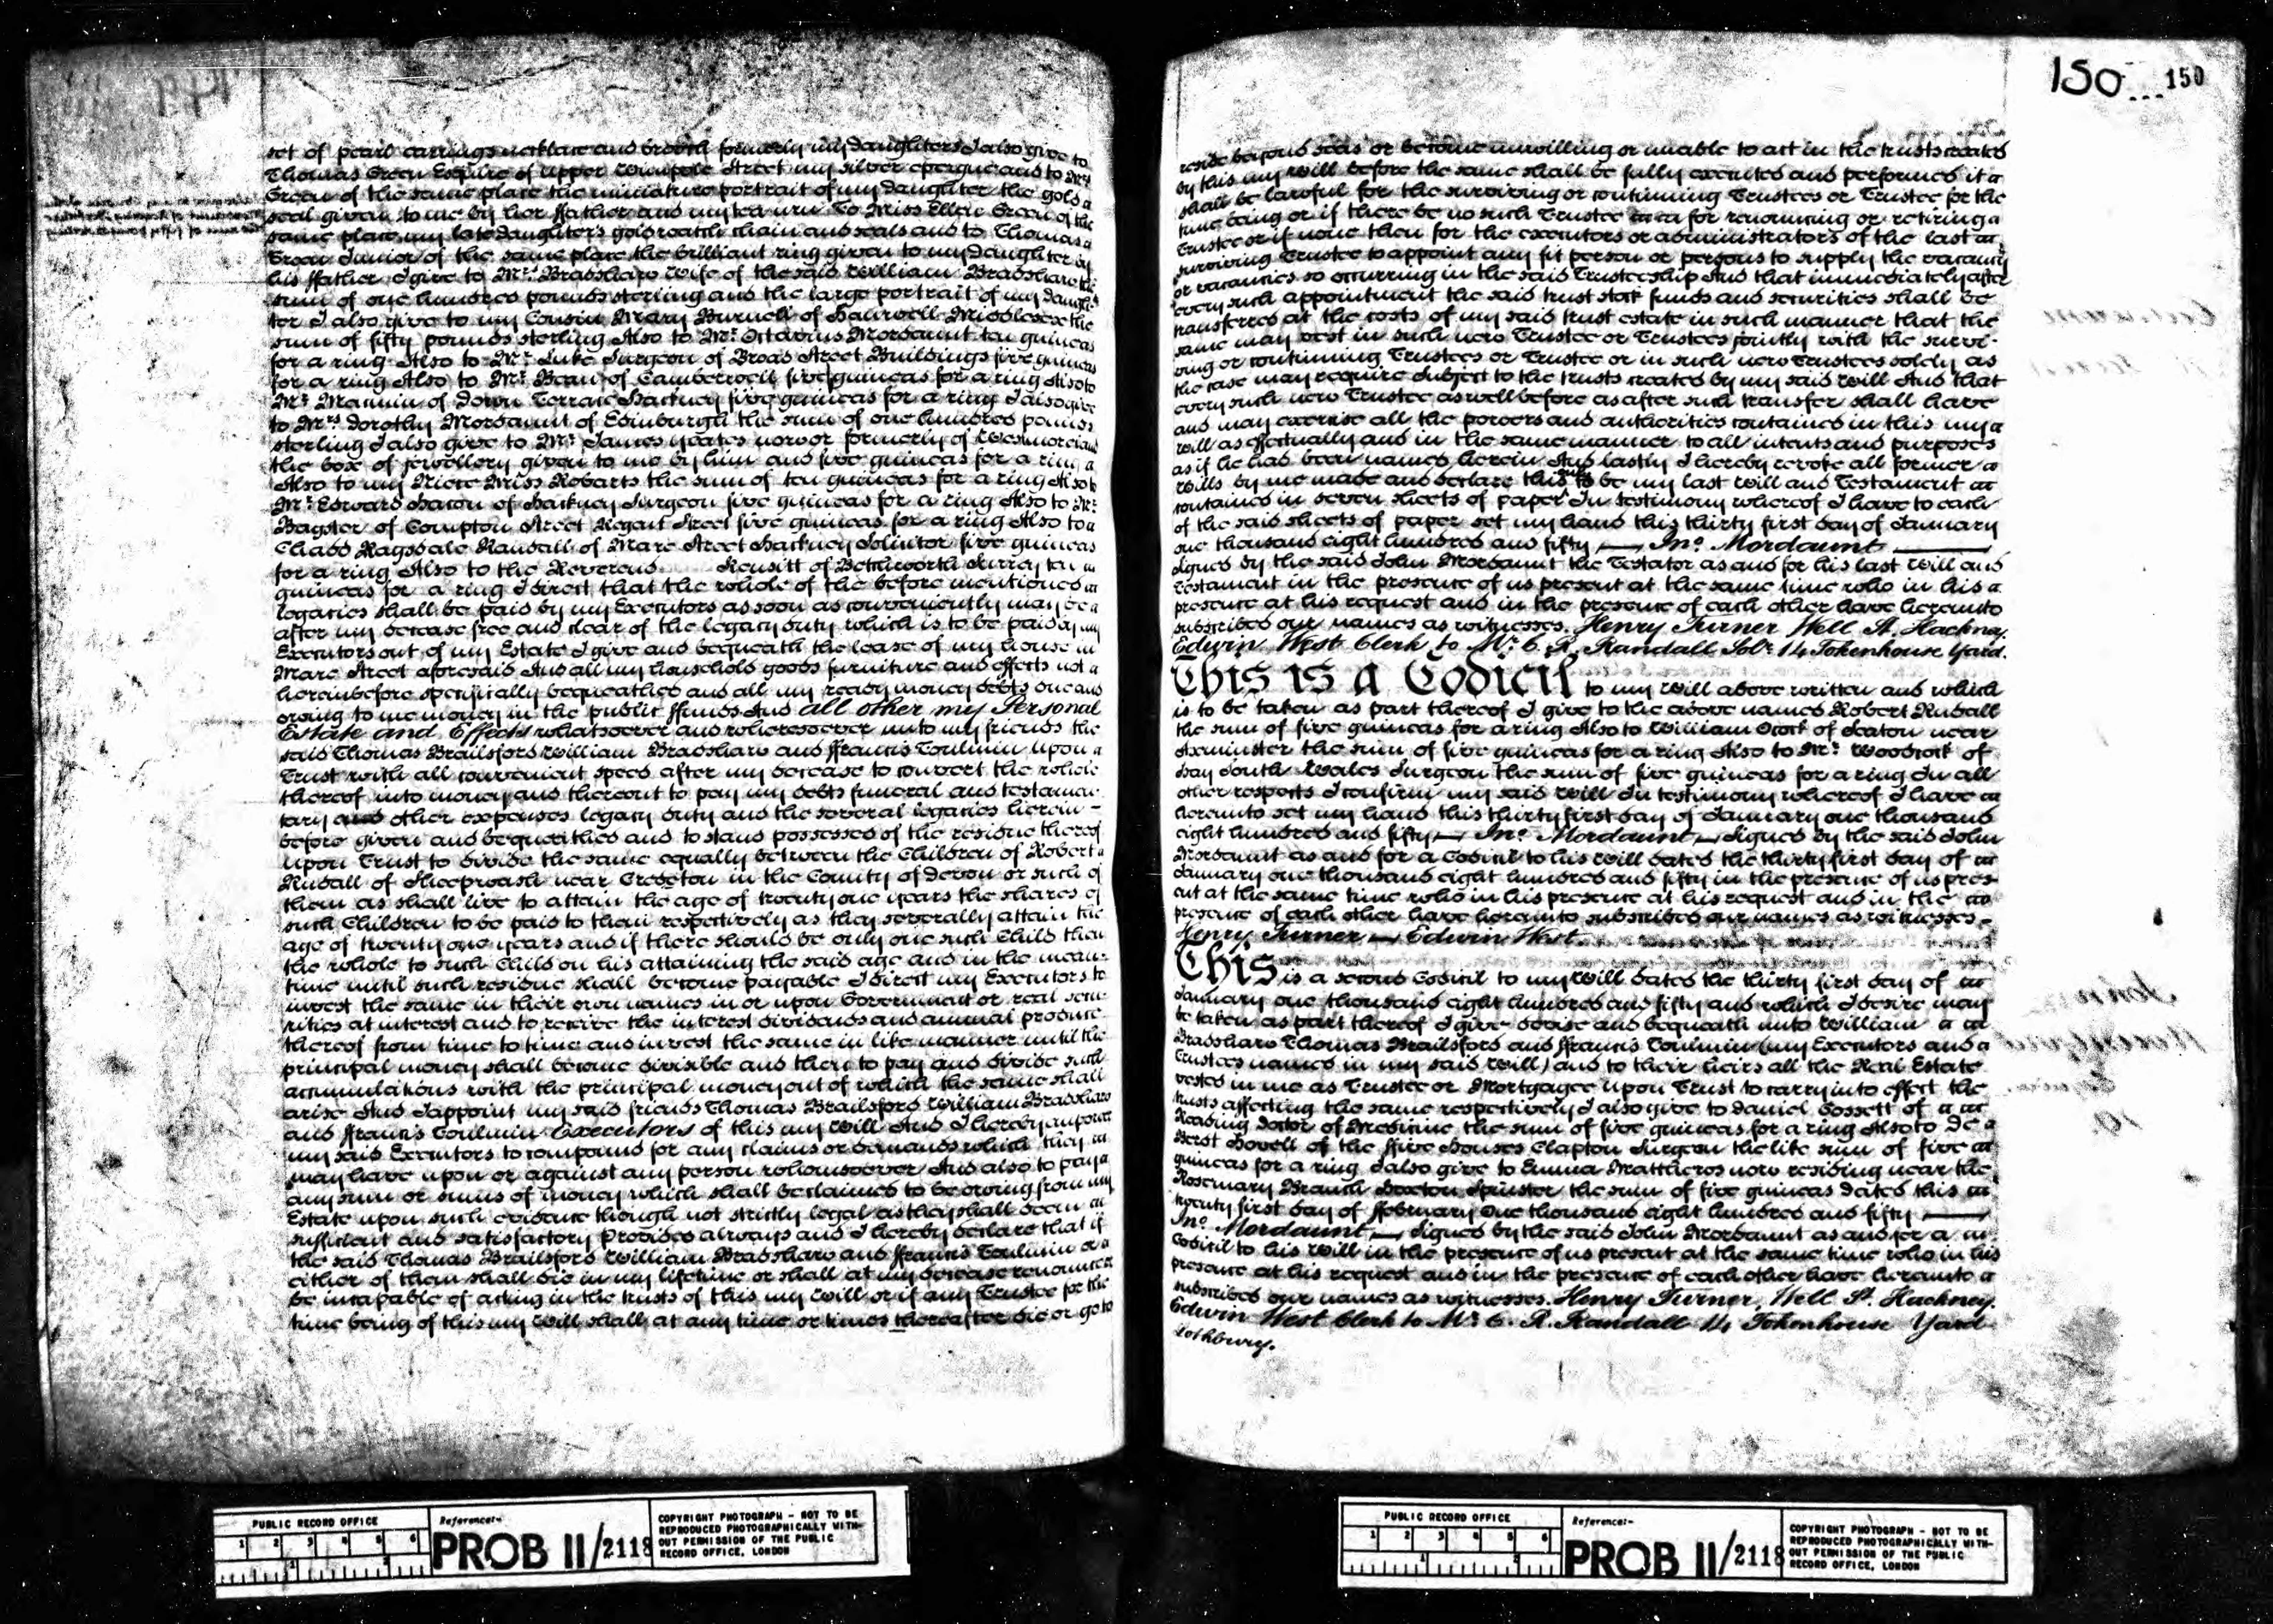 set of pearl earrings necklace and brooch formerly my daughters I also give to
Thomas Green Esquire of Upper Wimpole Street my silver epergne and to Mrs
Green of the same place the miniature portrait of my daughter the gold a
seal given to me by her ffather and my tea urn To Miss Ellen Green of the
same place my late daughters gold watch chain and seals and to Thomas a
Green Junior of the same place the brilliant ring given to my daughter by
his ffather I give to Mrs Bradshaw wife of the said William Bradshaw the
sum of one hundred pounds sterling and the large portrait of my daugh
ter I also give to my Cousin Mary Burnell of Halliwell Middlesex the
sum of fifty pounds sterling Also to Mr Octavius Mordaunt ten guineas
for a ring Also to Mr Luke Surgeon of Broad Street Buildings five guineas
for a ring Also to Mr Bean of Camberwell five guineas for a ring Also to
Mr of Down Terrace Hackney five guineas for a ring I also give
to Mrs Dorothy Mordaunt of Edinburgh the sum of one hundred pounds
sterling I also give to Mr James Yeates now or formerly of Westmorland
the box of jewellery given to me by him and five guineas for a ring a
Also to my Niece Miss Roberts the sum of ten guineas for a ring Also to
Mr Edward Hacon of Hackney Surgeon five guineas for a ring Also to Mr
Bagster of Compton Street Regent Street five guineas for a ring Also to a
Chas Ragsdale Randall of Mare Street Hackney Solicitor five guineas
for a ring Also to the Reverend of Betchworth Surrey ten
guineas for a ring I direct that the whole of the before mentioned
legacies shall be paid by my Executors as soon as conveniently may be a
after my decease free and clear of the legacy duty which is to be paid by my
Executors out of my Estate I give and bequeath the lease of my house in
Mare Street aforesaid And all my household goods furniture and effects not a
hereinbefore specifically bequeathed and all my ready money debts due and
owing to me money in the public ffunds And all other my Personal
Estate and Effects whatsoever and wheresoever unto my friends the
said Thomas Brailsford William Bradshaw and ffrancis Toulmin upon a
Trust with all convenient speed after my decease to convert the whole
thereof into money and thereout to pay my debts funeral and testamen
tary and other expenses legacy duty and the several legacies herein-
before given and bequeathed and to stand possessed of the residue thereof
upon Trust to divide the same equally between the Children of Robert
Rudall of Sheepwash near Crediton in the County of Devon or such of
them as shall live to attain the age of twenty one years the shares of
such Children to be paid to them respectively as they severally attain the
age of twenty one years and if there should be only one such Child then
the whole to such Child on his attaining the said age and in the mean
time until such residue shall become payable I direct my Executors to
invest the same in their own names in or upon Government or real secu
rities at interest and to receive the interest dividends and annual produce
thereof from time to time and invest the same in like manner until the
principal money shall become divisible and then to pay and divide such
accumulations with the principal money out of which the same shall
arise And I appoint my said friends Thomas Brailsford William Bradshaw
and ffrancis Toulmin Executors of this my Will And I hereby empower
my said Executors to compound for any claims or demands which they
may have upon or against any person whomsoever And also to pay a
any sum or sums of money which shall be claimed to be owing from my
Estate upon such evidence though not strictly legal as they shall deem
sufficient and satisfactory Provided always and I hereby declare that if
the said Thomas Brailsford William Bradshaw and ffrancis Toulmin or a
either of them shall die in my lifetime or shall at my decease renounce
be incapable of acting in the trusts of this my Will or if any Trustee for the
time being of this my Will shall at any time or times thereafter die or go to
150 ... 150
reside beyond seas or become unwilling or unable to act in the trusts created
by this my Will before the same shall be fully executed and performed it
shall be lawful for the surviving or continuing Trustees or Trustee for the
time being or if there be no such Trustee for renouncing or retiring a
Trustee or if none then for the executors or administrators of the last
surviving Trustee to appoint any fit person or persons to supply the vacancy
or vacancies so occurring in the said Trusteeship And that immediately after
every such appointment the said trust stock funds and securities shall be
transferred at the costs of my said trust estate in such manner that the
same may vest in such new Trustee or Trustees jointly with the survi-
ving or continuing Trustees or Trustee or in such new Trustees solely as
the case may require subject to the trusts created by my said Will And that
every such new Trustee as well before as after such transfer shall have
and may exercise all the powers and authorities contained in this my a
Will as effectually and in the same manner to all intents and purposes
as if he had been named herein And lastly I hereby revoke all former a
Wills by me made and declare this only to be my last Will and Testament
contained in seven sheets of paper In testimony whereof I have to each
of the said sheets of paper set my hand this thirty first day of January
one thousand eight hundred and fifty — Jno. Mordaunt —
Signed by the said John Mordaunt the Testator as and for his last Will and
Testament in the presence of us present at the same time who in his a
presence at his request and in the presence of each other have hereunto
subscribed our names as witnesses. Henry Turner Well St. Hackney.
Edwin West Clerk to Mr C. R. Randall Solr. 14 Tokenhouse Yard.
This is a Codicil to my Will above written and which
is to be taken as part thereof I give to the above named Robert Rudall
the sum of five guineas for a ring Also to William of Seaton near
Axminster the sum of five guineas for a ring Also to Mr Woodcock of
Hay South Wales Surgeon the sum of five guineas for a ring In all
other respects I confirm my said Will In testimony whereof I have
hereunto set my hand this thirty first day of January one thousand
eight hundred and fifty — Jno. Mordaunt — Signed by the said John
Mordaunt as and for a Codicil to his Will dated the thirty first day of
January one thousand eight hundred and fifty in the presence of us pres
ent at the same time who in his presence at his request and in the
presence of each other have hereunto subscribed our names as witnesses.
Henry Turner — Edwin West.
This is a second Codicil to my Will dated the thirty first day of
January one thousand eight hundred and fifty and which I desire may
be taken as part thereof I give devise and bequeath unto William
Bradshaw Thomas Brailsford and ffrancis Toulmin (my Executors and a
Trustees named in my said Will) and to their heirs all the Real Estate
vested in me as Trustee or Mortgagee upon Trust to carry into effect the
trusts affecting the same respectively I also give to Daniel Cossett of
Reading Doctor of Medicine the sum of five guineas for a ring Also to De
Berdt Hovell of the ffive Houses Clapton Surgeon the like sum of five
guineas for a ring I also give to Emma Matthews now residing near the
Rosemary Branch Hoxton Spinster the sum of five guineas Dated this
twenty first day of ffebruary One thousand eight hundred and fifty —
Jno. Mordaunt — Signed by the said John Mordaunt as and for a
Codicil to his Will in the presence of us present at the same time who in his
presence at his request and in the presence of each other have hereunto a
subscribed our names as witnesses. Henry Turner, Well St. Hackney.
Edwin West Clerk to Mr C. R. Randall 14 Tokenhouse Yard
Lothbury.
PUBLIC RECORD OFFICE
Reference:-
PROB 11/2118
COPYRIGHT PHOTOGRAPH - NOT TO BE
REPRODUCED PHOTOGRAPHICALLY WITH-
OUT PERMISSION OF THE PUBLIC
RECORD OFFICE, LONDON
PUBLIC RECORD OFFICE
Reference:-
PROB 11/2118
COPYRIGHT PHOTOGRAPH - NOT TO BE
REPRODUCED PHOTOGRAPHICALLY WITH-
OUT PERMISSION OF THE PUBLIC
RECORD OFFICE, LONDON